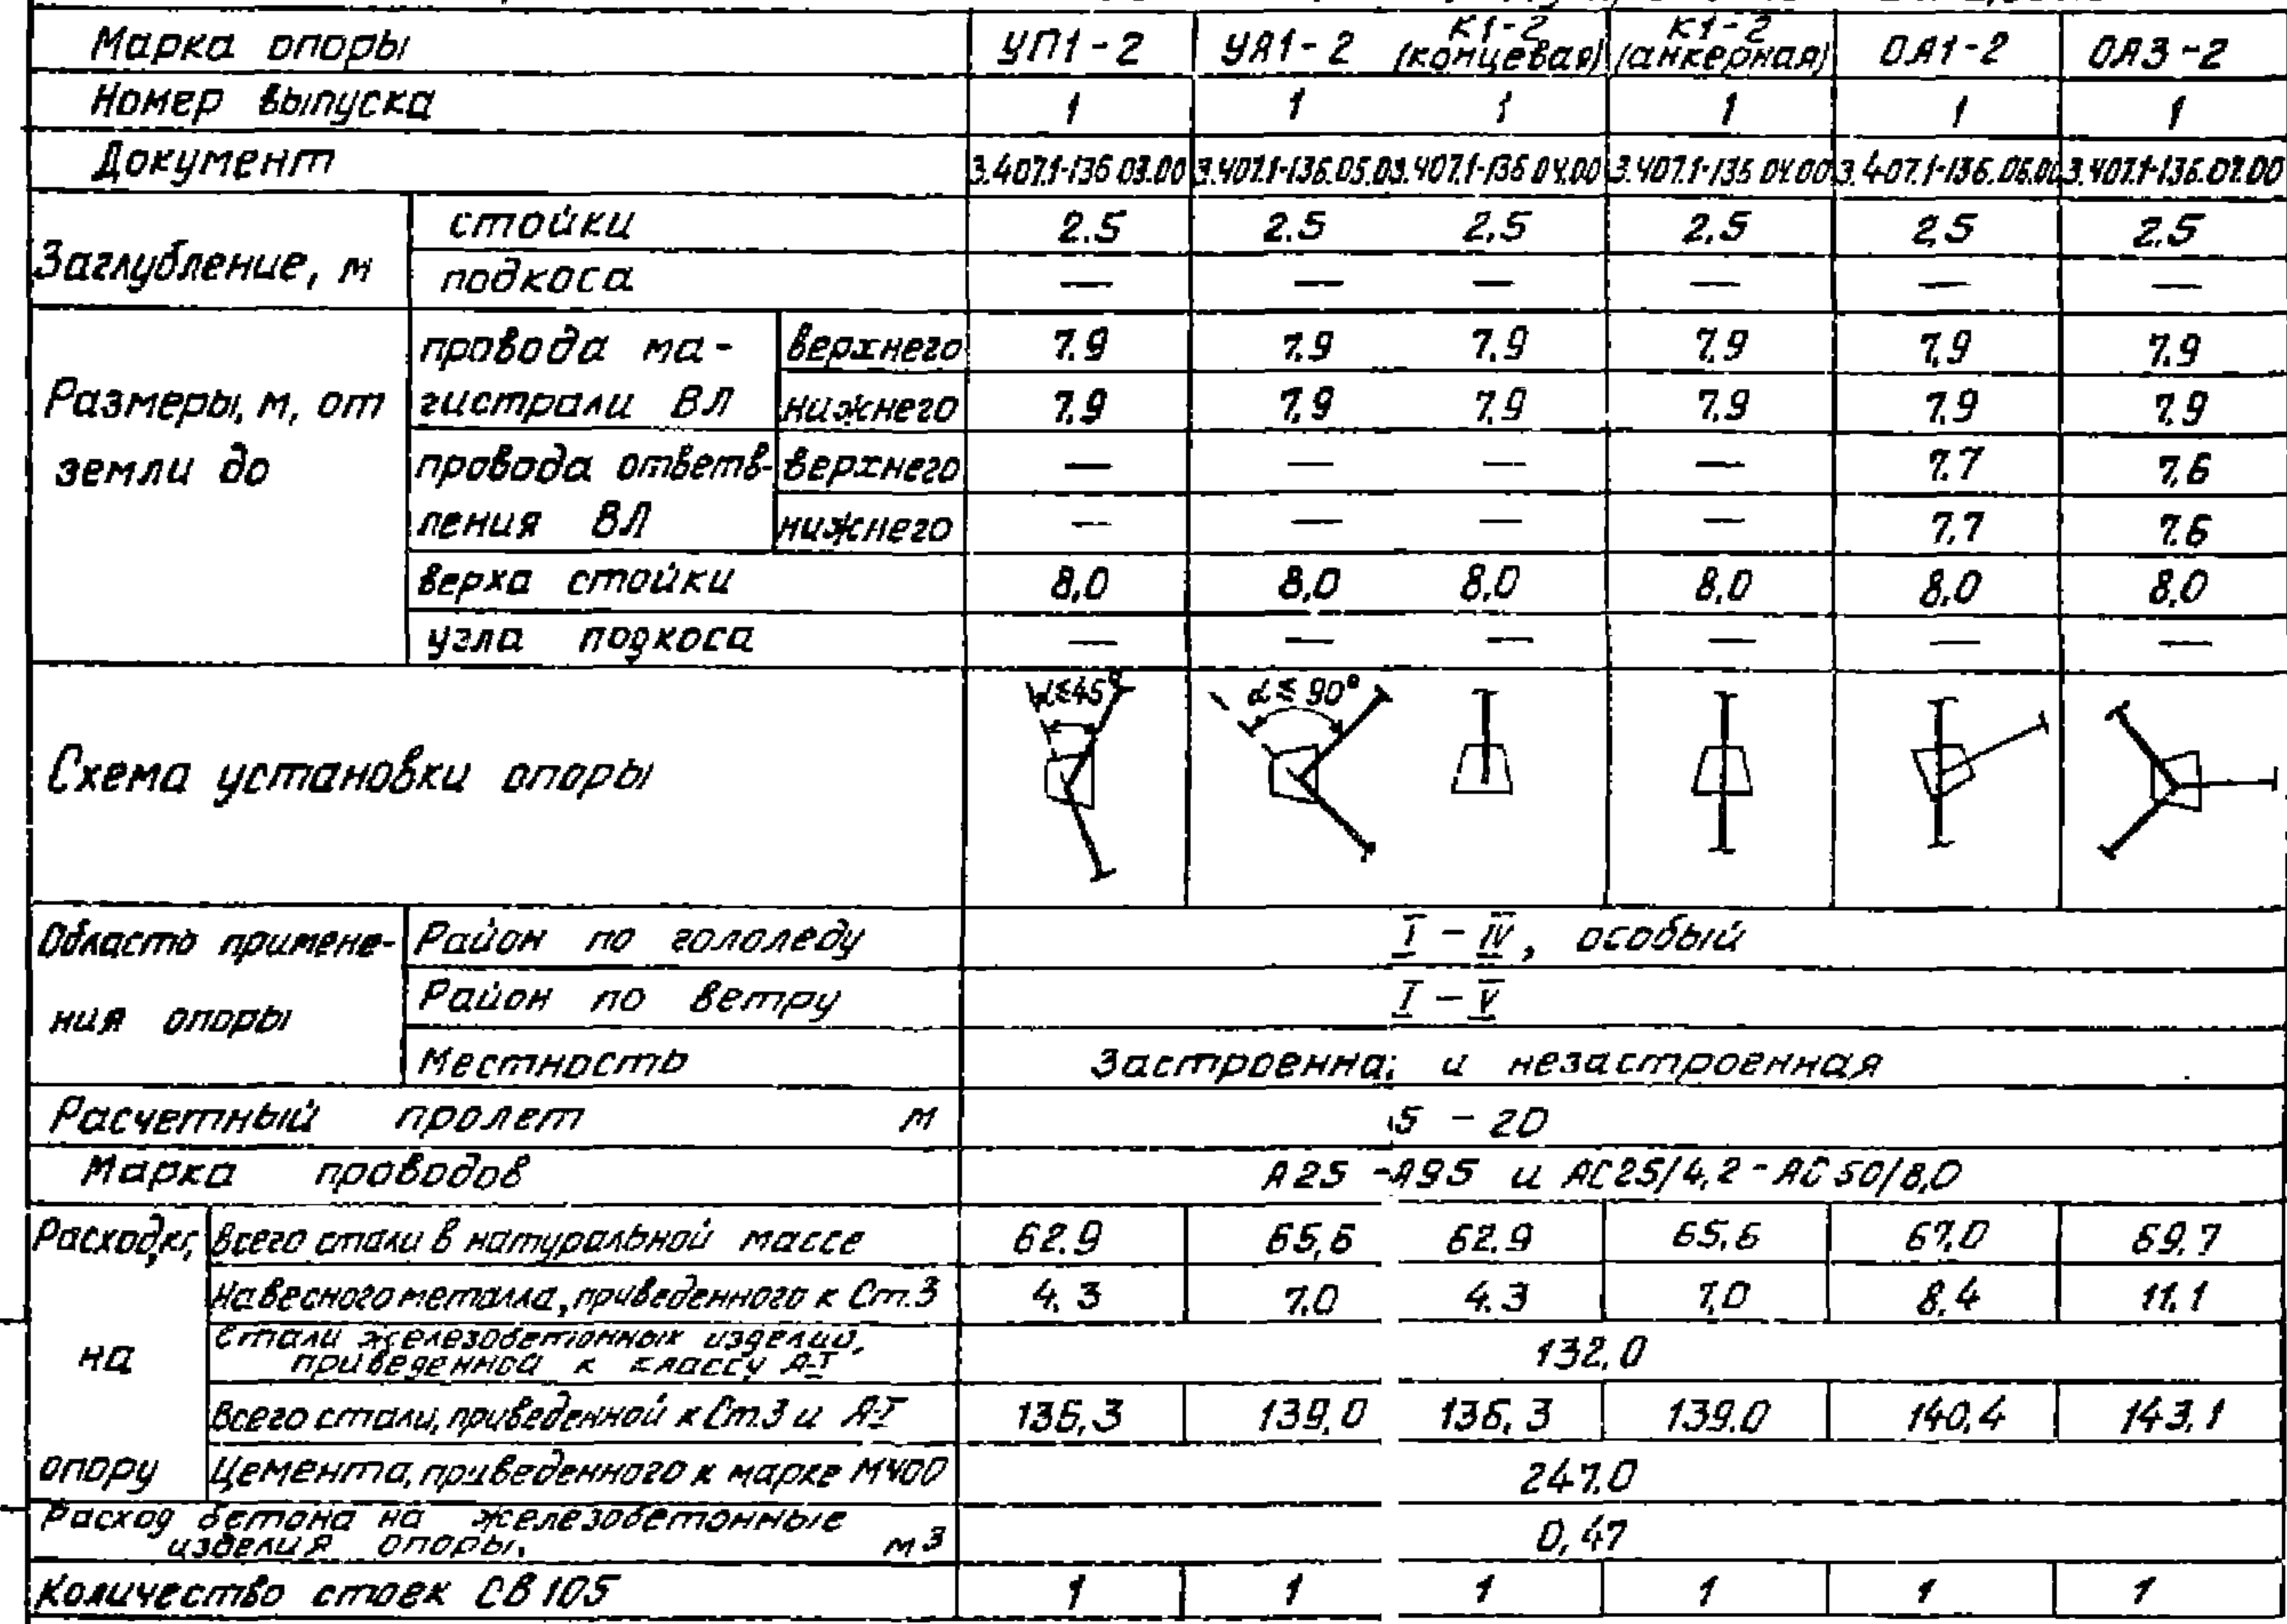 Марка опоры УП1-2 УА1-2 К1-2 (концевая) К1-2 (анкерная) ОА1-2 ОА3-2
Номер выпуска 1 1 1 1 1 1
Документ 3.407.1-136 03.00 3.407.1-136.05.0 3.407.1-136 04.00 3.407.1-136 04.00 3.407.1-136.06.00 3.407.1-136.07.00
Заглубление, м
стойки 2.5 2.5 2,5 2,5 2,5 2.5
подкоса — — — — — —
Размеры, м, от
земли до
провода ма-
гистрали ВЛ
верхнего 7.9 7.9 7.9 7.9 7,9 7.9
нижнего 7.9 7,9 7,9 7.9 7.9 7.9
провода ответв-
ления ВЛ
верхнего — — — — 7.7 7,6
нижнего — — — — 7,7 7.6
верха стойки 8,0 8,0 8,0 8,0 8,0 8,0
угла подкоса — — — — — —
Схема установки опоры
α≤45°
α≤90°
Область примене-
ния опоры
Район по гололеду I – IV, особый
Район по ветру I – V
Местность Застроенна и незастроенная
Расчетный пролет м 5 – 20
Марка проводов А25 -А95 и АС25/4,2 - АС 50/8,0
Расход,кг,
на
опору
Всего стали в натуральной массе 62.9 65,6 62.9 65,6 67,0 69.7
Навесного металла, приведенного к Ст.3 4.3 7.0 4.3 7,0 8,4 11.1
Стали железобетонных изделий,
приведенной к классу А-I 132,0
Всего стали, приведенной к Ст.3 и А-I 136,3 139,0 136,3 139.0 140,4 143,1
Цемента, приведенного к марке М400 247,0
Расход бетона на железобетонные
изделия опоры. м3 0,47
Количество стоек СВ 105 1 1 1 1 1 1